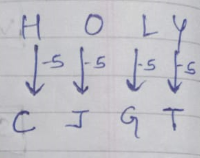 H O L Y
-5 -5 -5 -5
C J G T